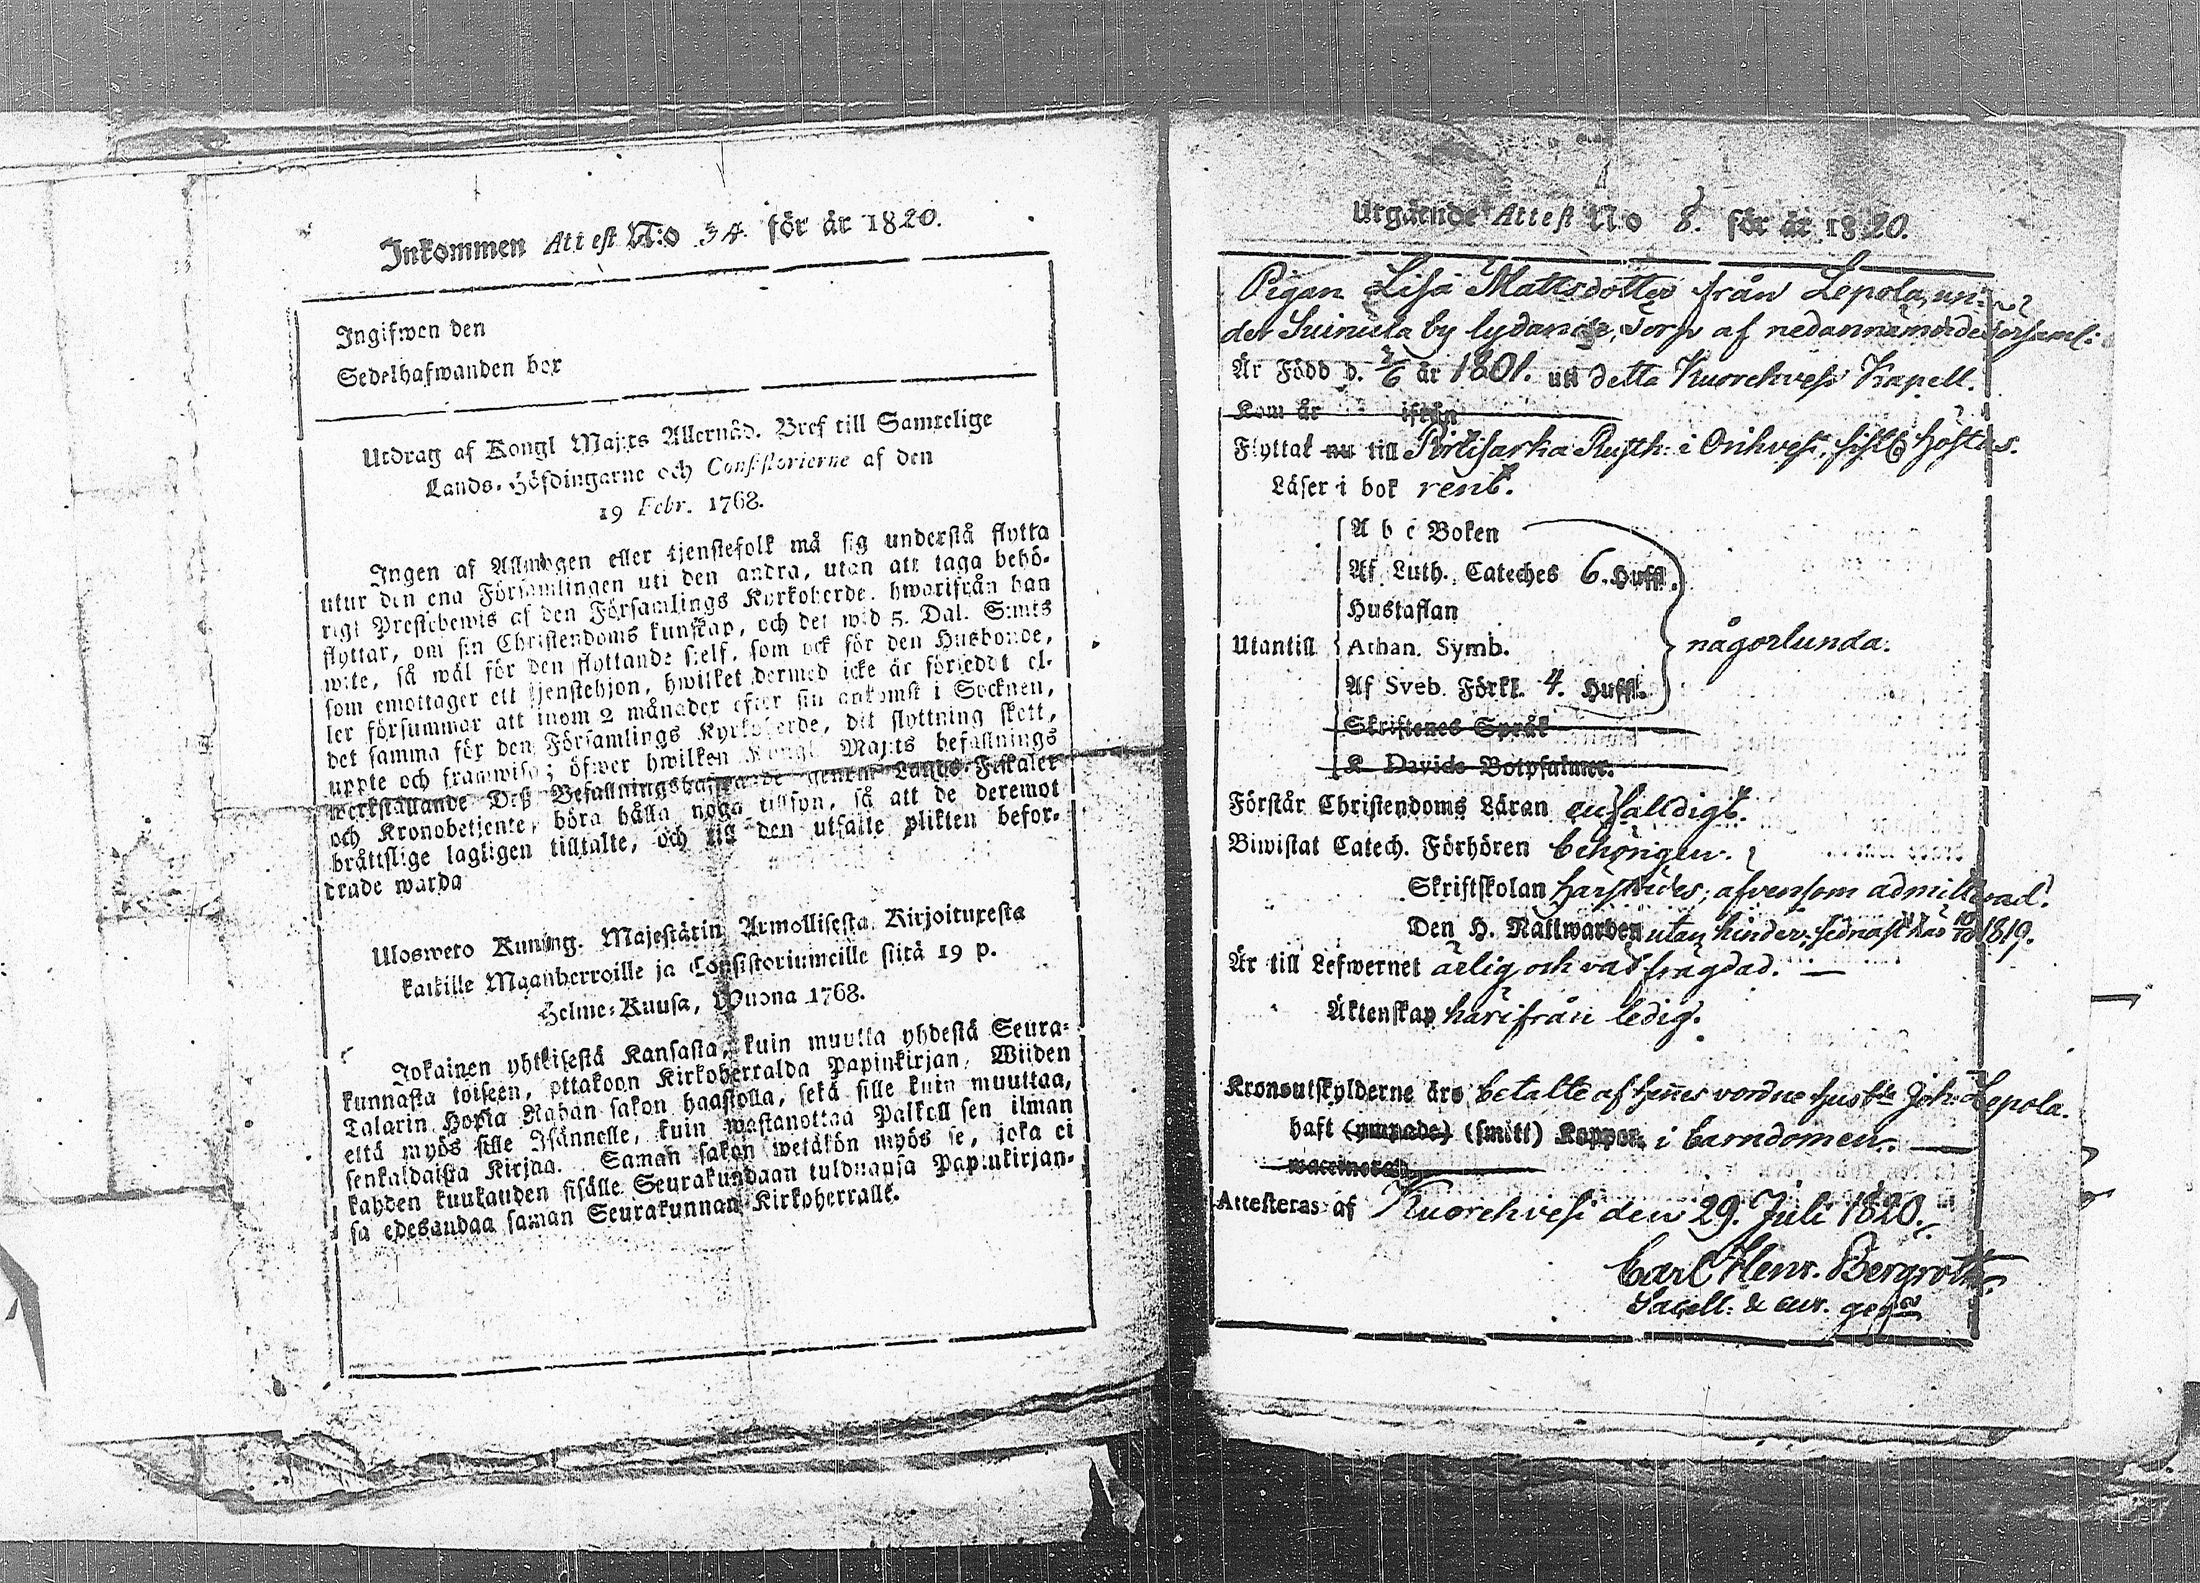 Inkommen Attest N:o 34. för år 1820.
Ingifwen den
Sedelhafwanden bor
Utdrag af Kongl Maj:ts Allernåd. Bref till Samtelige
Lands-Höfdingarne och Consistorierne af den
19 Febr. 1768.
Ingen af Allmogen eller tjenstefolk må sig understå flytta
utur den ena Församlingen uti den andra, utan att taga behö-
rigt Prestebewis af den Församlings Kyrkoherde, hwarifrån han
flyttar, om sin Christendoms kunskap, och det wid 5. Dal. S:mts
wite, så wäl för den flyttande sjelf, som ock för den Husbonde,
som emottager ett tjenstehjon, hwilket dermed icke är försedt el-
ler försummar att inom 2 månader efter sin ankomst i Socknen,
det samma för den Församlings Kyrkoherde, dit flyttning skett,
uppte och framwisa; öfwer hwilken Kongl Maj:ts befallnings
werkställande Deß Befallningshafwande genom Lands-Fiskaler
och Kronobetjente, böra hålla noga tillsyn, så att de deremot
bråttslige lagligen tilltalte, och till den utsatte plikten befor-
drade warda
Uloswето Kuning. Majestätin Armollisesta Kirjoituxesta
kaikille Maanherroille ja Consistoriumeille siitä 19 p.
Helme-Kuusa, Wuona 1768.
Jokainen yhteisestä Kansasta, kuin muutta yhdestä Seura-
kunnasta toiseen, ottakoon Kirkoherralda Papinkirjan, Wiiden
Talarin Hopia Rahan sakon haastolla, sekä sille kuin muuttaa,
että myös sille Isännelle, kuin wastanottaa Palkoll sen ilman
senkaldaista Kirjaa. Saman sakon wetäkön myös se, joka ei
kahden kuukauden sisälle Seurakundaan tulduansa Papinkirjan-
sa edesandaa saman Seurakunnan Kirkoherralle.
Utgående Attest No 8. för år 1820.
Pigan Lisa Mattsdotter från Lepola, un-
der Suinula by lydande, torp af nedannämnde församl:
Är Född d. 3/6 år 1801. uti detta Kuorehvesi Kapell.
Kom år ifrån
Flyttat nu till Pirtisarka Rusth: i Orihvesi, sistl. höstas.
Läser i bok rent.
A b c Boken
Af Luth. Cateches 6. Huffl.
Hustaflan
Utantill Athan. Symb. någorlunda.
Af Sveb. Förkl. 4. Huffl.
Skriftenes Språk
K Davids Botpsalmer.
Förstår Christendoms Läran enfalldigt.
Biwistat Catech. Förhören behörigen.
Skriftskolan härstädes, äfvensom admitterad.
Den H. Nattwarden utan hinder, sednast här 10/10 1819.
Är till Lefwernet ärlig och väl frägdad.
Äktenskap härifrån ledig.
Kronoutskylderne äro betalte af hennes vordne husb:de Joh: Lepola.
haft (ympade) (smått) Koppor. i barndomen.
waccinerad
Attesteras af Kuorehvesi den 29. Juli 1820.
Carl Henr. Bergroth
Sacell: & cur. ger:s